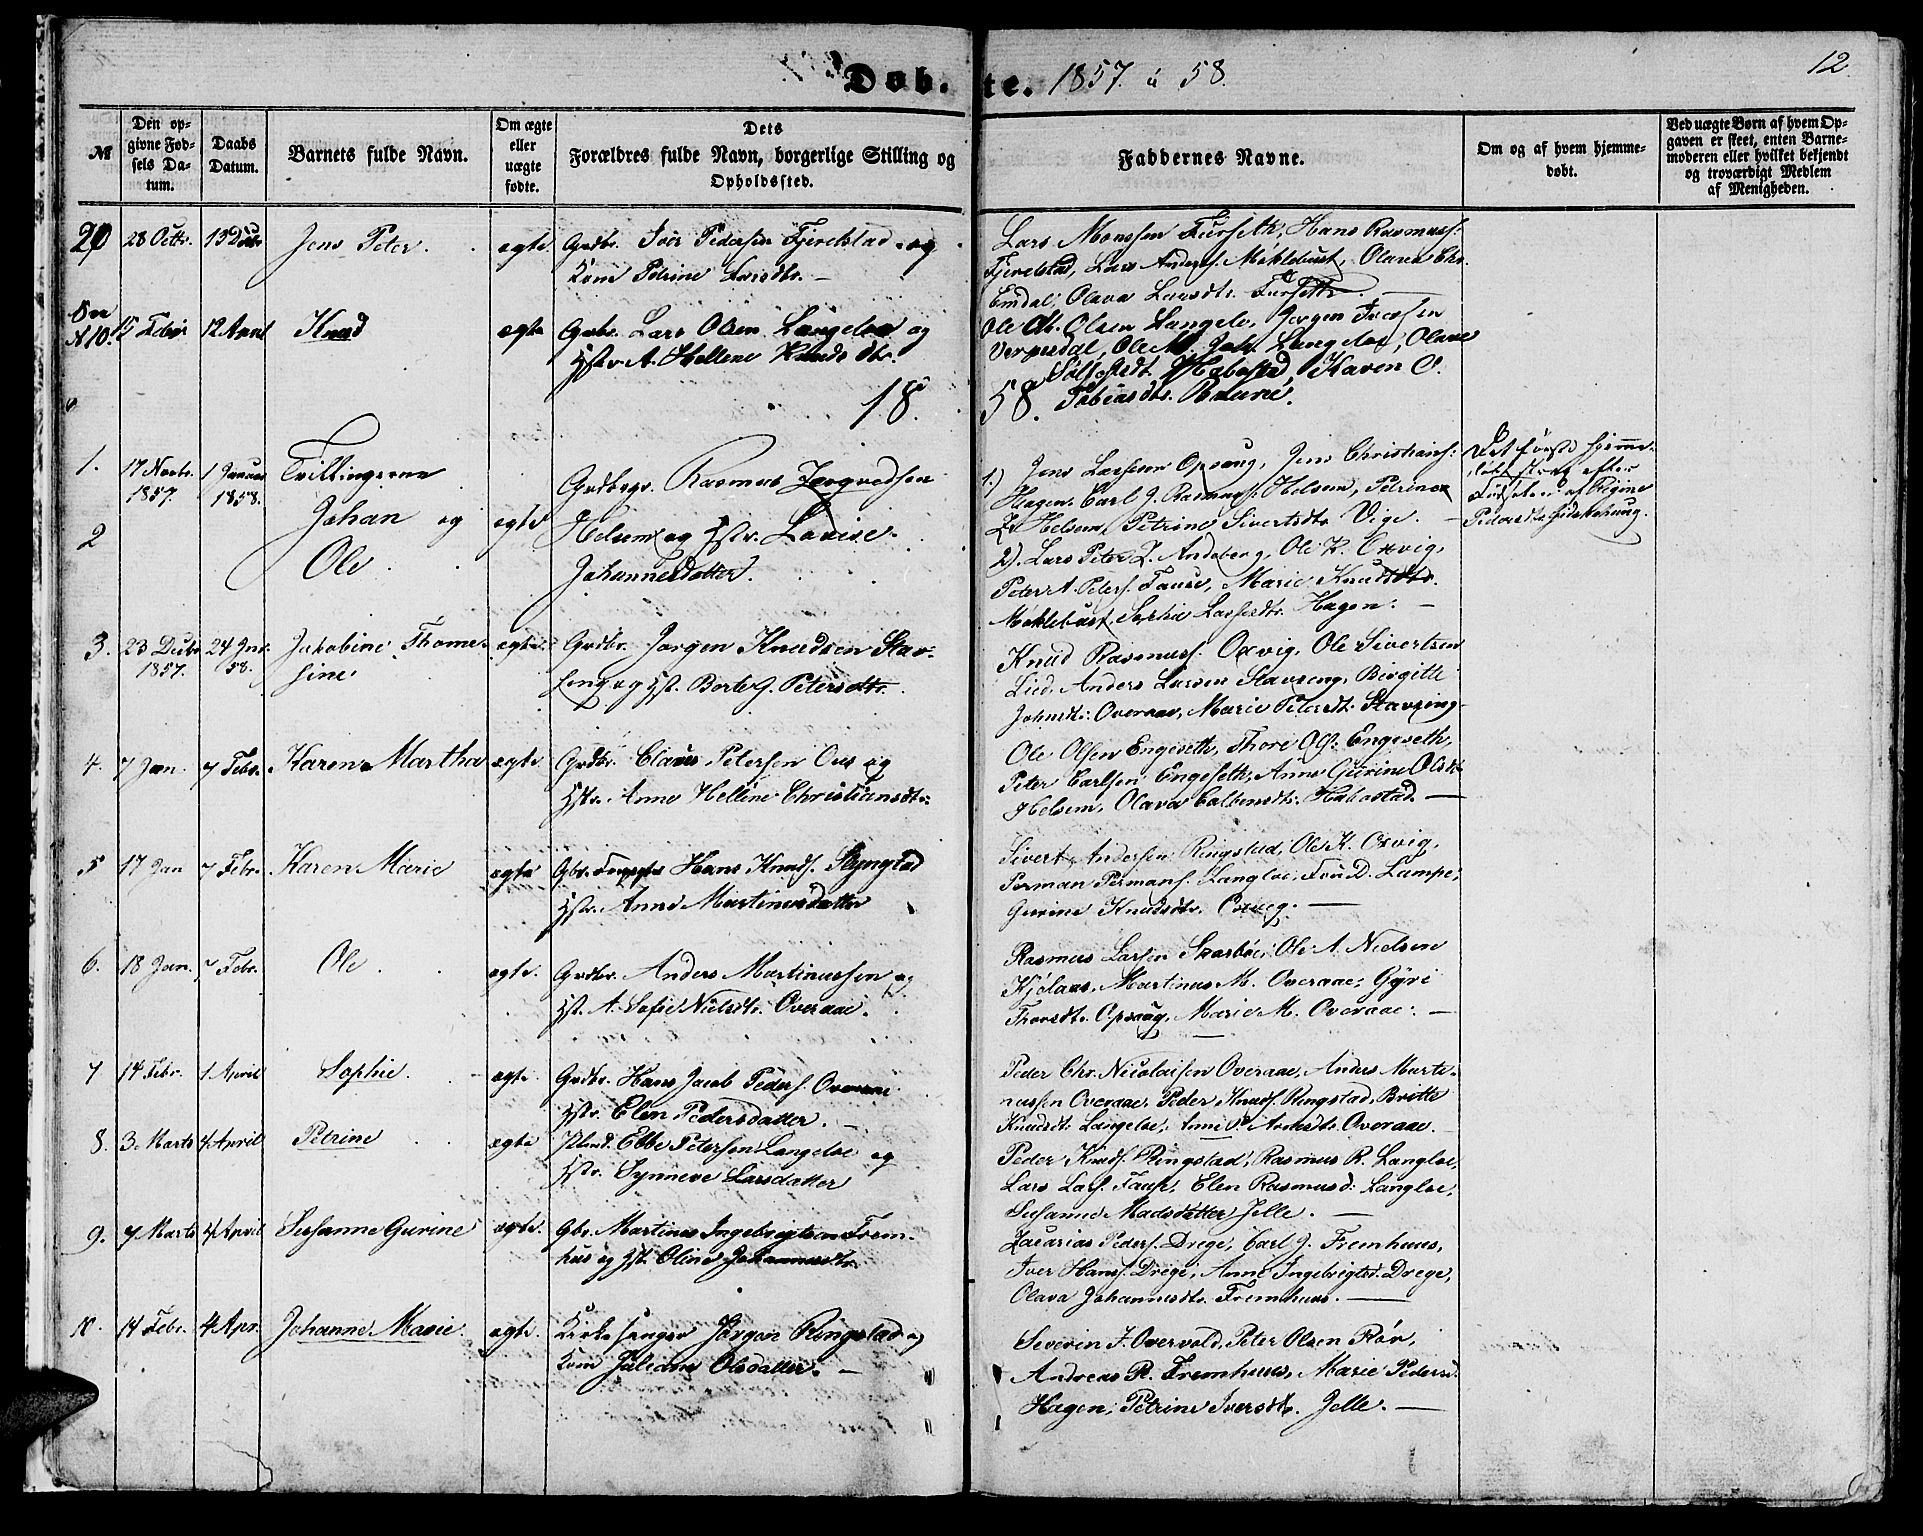 Døb-te. 1857 à 58.
12.
№
Den op-
givne Fød-
sels Da-
tum.
Daabs
Datum.
Barnets fulde Navn.
Om ægte
eller
uægte
fødte.
Dets
Forældres fulde Navn, borgerlige Stilling og
Opholdssted.
Faddernes Navne.
Om og af hvem hjemme-
døbt.
Ved uægte Børn af hvem Op-
gaven er skeet, enten Barne-
moderen eller hvilket bekjendt
og troværdigt Medlem
af Menigheden.
28 Octbr. 13 Jens Peter. ægte Grdbr. Iver Pedersen Fjerelstad og
Kone Petrine Larsdtr.
Lars Monssen Furseth, Hans Rasmuss:
Fjerelstad, Lars Anders. Møklebust, Olava Chr.
Emdal, Olava Larsdtr. Furseth.
№10. 15 Febr. 12 April Knud ægte Lars Olsen Langeloe og
Hstr. A. Hellene Knudsdtr.
Ole Olsen Langelo, Jørgen Iversen
Ole Langeloe, Olave
Habostad, Karen O.
Tobiasdtr.
18 58.
1. 17 Novbr. 1 Januar Tvillingerne
1857. 1858.
Johan og ægte
2 Ole.
Grdbrgr. Rasmus
Helsem og Hstr. Lovise
Johannesdatter.
1) Jens Larssen Opsaug, Jens Christians:
Hagen, Carl J. Rasmuss: Helsem, Petrine
Helsem, Petrine Sivertsdtr. Vige.
2). Lars Peter L. Andeberg, Ole K. Oxvig,
Peter A. Peters. Tause, Marie Knudsdtr.
Møklebust, Sophie Lassesdtr. Hagen.
Det første hjemme-
døbt strax efter
Fødselen af Regine
Pedersdtr.
3. 23 Decbr 24 Jnr. Jakobine Thome- ægte.
1857. 58. sine
Grdbr. Jørgen Knudsen Stav-
seng og Hst. Berte G. Petersdtr.
Knud Rasmuss. Oxvig, Ole Sivertsen
Lied, Anders Larsen Stavseng, Birgitte
Johnsdt: Overaae, Marie Petersdt: Stavseng
4. 7 Jan. 7 Febr. Karen Martha ægte. Grdbr. Claus Petersen Ous og
Hstr. Anne Helléne Christiansdtr.
Ole Olsen Engeseth, Thore Ols: Engeseth,
Peter Carlsen Engeseth, Anne Gurine Olsdt
Helsem, Olava Habostad.
5 17 Jan 7 Febr. Karen Marie ægte Hans Knuds. Ryngstad
Hstr. Anne Martinusdatter
Sivert Andersen Ringstad, Ole K. Oxvig,
Perman Permans. Langloe, Lampe,
Gurine Knudsdtr. Oxvig.
6. 18 Jan. 7 Febr. Ole. ægte. Grdbr. Anders Martinussen og
Hst. A. Sofie Nielsdt. Overaae.
Rasmus Larsen Skarbøe, Ole A. Nielsen
Kjølaas, Martinus M. Overaae, Gyri
Thorsdt. Opsaug, Marie M. Overaae.
7 14 Febr. 1 April Sophie. ægte. Grdbr. Hans Jacob Peders. Overaae
Hstr. Elen Pedersdatter.
Peder Chr. Nicolaisen Overaae, Anders Marti-
nussen Overaae, Peder Knuds. Ringstad, Britte
Knudsdt: Langeloe, Overaae.
8. 3. Marts 4 April Petrine ægte Ebbe Petersen Langeloe og
Hstr. Synneve Larsdatter
Peder Knuds. Ringstad, Rasmus R. Langloe,
Lars Lars. Tause, Elen Rasmusd: Langloe,
Susanne Madsdatter Jelle.
9. 7 Marts 4 April Susanne Gurine ægte. Gbr. Martinus Ingebrigtsen Frem-
hus og Hst. Oline Johannesdtr.
Zacarias Peders. Drege, Carl J. Fremhuus,
Iver Hans. Drege, Anne Ingebrigtsd. Drege,
Olava Johannesdtr. Fremhuus.
10. 14 Febr. 4 Apr. Johanne Marie ægte. Kirkesanger Jørgen Ringstad og
Kone Juliane Olsdatter.
Severin J. Overvold, Peter Olsen Rør,
Andreas R. Fremhuus, Marie Pedersd.
Hagen, Petrine Iversdtr. Jelle.